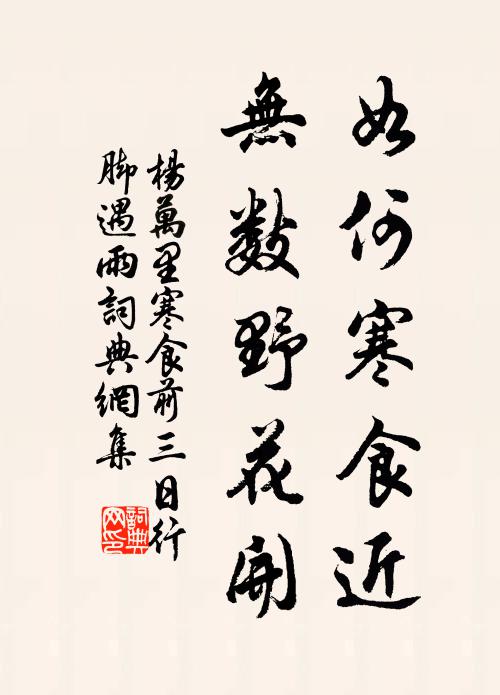 如何寒食近
無數野花開
楊萬里寒食前三日行
脚遇雨詞典網集
詞典
网印